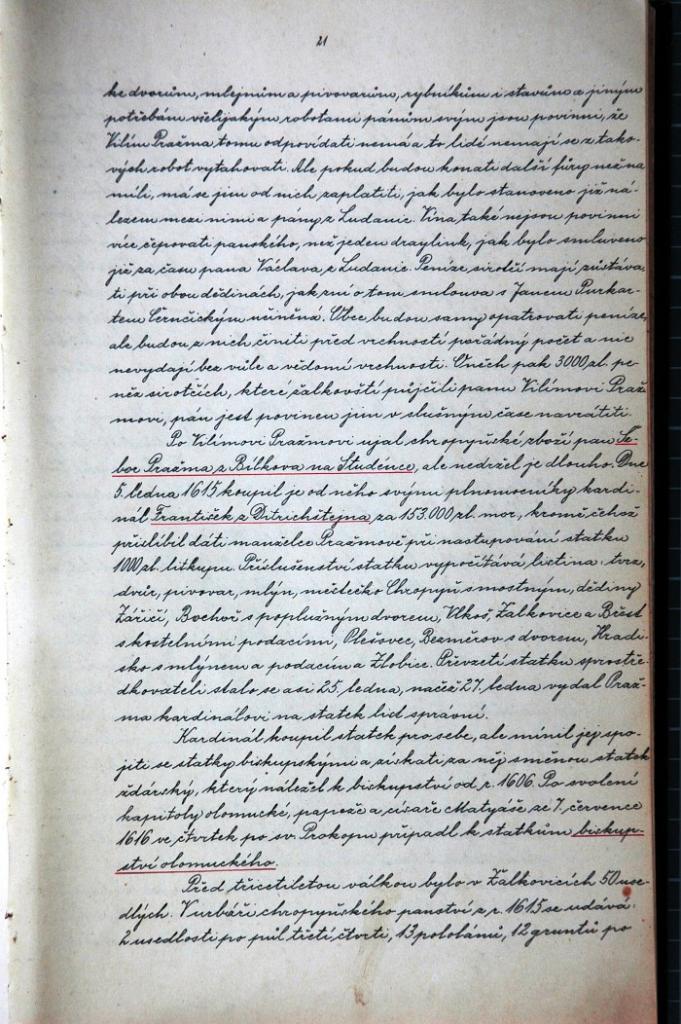 21
ke dvorům, mlejnům a pivovarům, rybníkům i stavům a jiným
potřebám všelijakým robotami pánům svým jsou povinni, že
Vilím Pražma tomu odpovídati nemá a to lidé nemají se z tako-
vých robot vytahovati. Ale pokud budou konati další fůry než na
míli, má se jim od nich zaplatiti, jak bylo stanoveno již ná-
lezem mezi nimi a pány z Ludanic. Vína také nejsou povinni
více čepovati panského, než jeden draylink, jak bylo smluveno
již za času pana Václava z Ludanic. Peníze sirotčí mají zůstáva-
ti při obou dědinách, jak zní o tom smlouva s Janem Purkar-
tem Černčickým učiněna. Obec budou samy opatrovati peníze,
ale budou z nich činiti před vrchností pořádný počet a nic
nevydají bez vůle a vědomí vrchnosti. Oněch pak 3000 zl. pe-
něz sirotčích, které žalkovští půjčili panu Vilímovi Praž-
movi, pán jest povinen jim v slušným čase navrátiti.
Po Vilímovi Pražmovi ujal chropyňské zboží pan Se-
bor Pražma z Bílkova na Studénce, ale nedržel je dlouho. Dne
5. ledna 1615 koupil je od něho svými plnomocníky kardi-
nál František z Ditrichštejna za 153.000 zl. mor., kromě čehož
přislíbil dáti manželce Pražmově při nastupování statku
1000 zl. litkupu. Příslušenství statku vypočítává listina: tvrz,
dvůr, pivovar, mlýn, městečko Chropyň s mostným, dědiny
Záříčí, Bochoř s poplužným dvorem, Vlkoš, Žalkovice a Břest
s kostelními podacími, Plešovec, Bezměrov s dvorem, Hradi-
sko s mlýnem a podacím a Zlobice. Převzetí statku sprostře-
dkovateli stalo se asi 25. ledna, načež 27. ledna vydal Praž-
ma kardinálovi na statek list správní.
Kardinál koupil statek pro sebe, ale mínil jej spo-
jiti se statky biskupskými a získati za něj směnou statek
ždárský, který náležel k biskupství od r. 1606. Po svolení
kapitoly olomucké, papeže a císaře Matyáše ze 7. července
1616 ve čtvrtek po sv. Prokopu připadl k statkům biskup-
ství olomuckého.
Před třicetiletou válkou bylo v Žalkovicích 50 use-
dlých. V urbáři chropyňského panství z r. 1615 se udává:
2 usedlosti po půl třetí čtvrti, 13 pololánů, 12 gruntů po